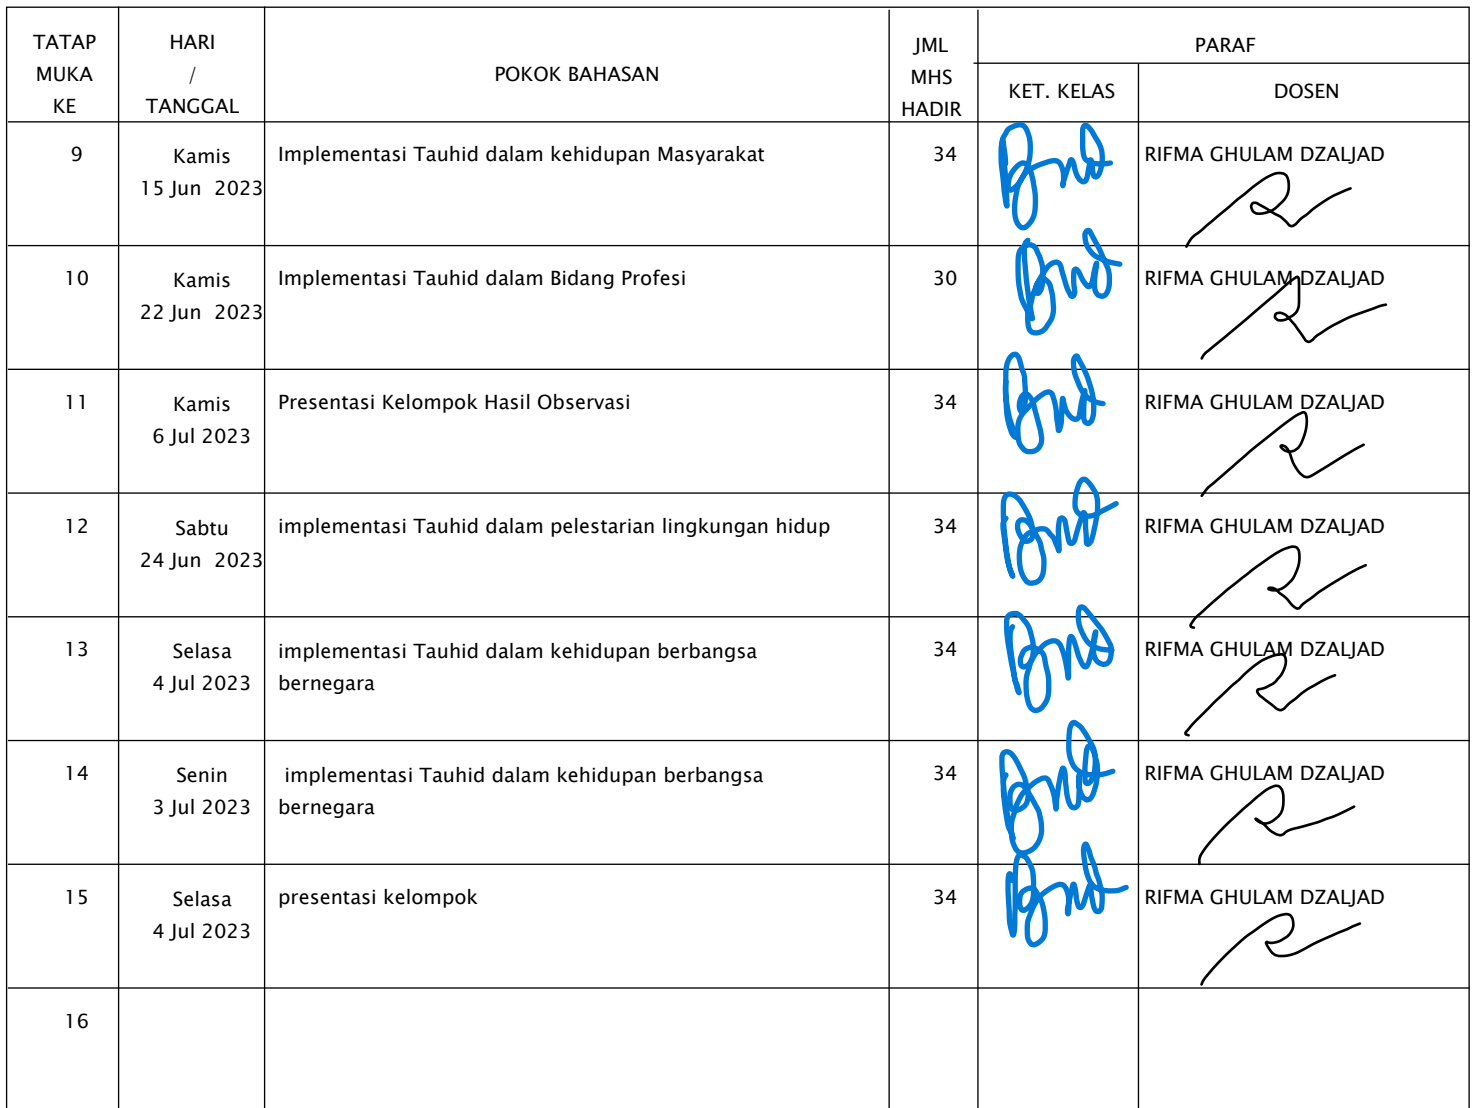 TATAP MUKA KE
HARI / TANGGAL
POKOK BAHASAN
JML MHS HADIR
PARAF
KET. KELAS
DOSEN
9
Kamis
15 Jun 2023
Implementasi Tauhid dalam kehidupan Masyarakat
34
RIFMA GHULAM DZALJAD
10
Kamis
22 Jun 2023
Implementasi Tauhid dalam Bidang Profesi
30
RIFMA GHULAM DZALJAD
11
Kamis
6 Jul 2023
Presentasi Kelompok Hasil Observasi
34
RIFMA GHULAM DZALJAD
12
Sabtu
24 Jun 2023
implementasi Tauhid dalam pelestarian lingkungan hidup
34
RIFMA GHULAM DZALJAD
13
Selasa
4 Jul 2023
implementasi Tauhid dalam kehidupan berbangsa
bernegara
34
RIFMA GHULAM DZALJAD
14
Senin
3 Jul 2023
implementasi Tauhid dalam kehidupan berbangsa
bernegara
34
RIFMA GHULAM DZALJAD
15
Selasa
4 Jul 2023
presentasi kelompok
34
RIFMA GHULAM DZALJAD
16